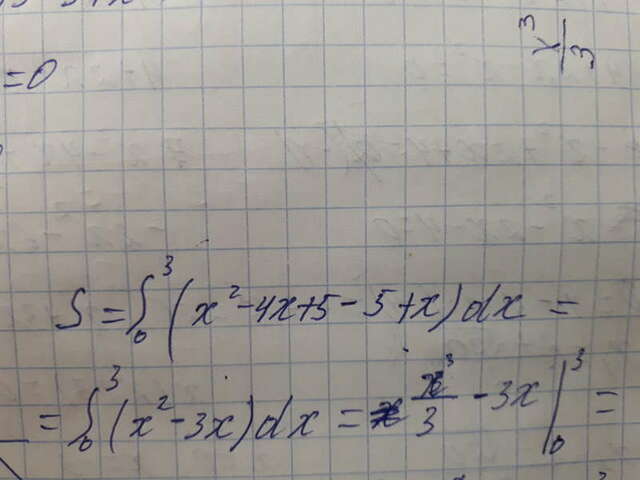 = 0
x³/3
S = ∫₀³ (x² - 4x + 5 - 5 + x) dx =
= ∫₀³ (x² - 3x) dx = x³/3 - 3x |₀³ =